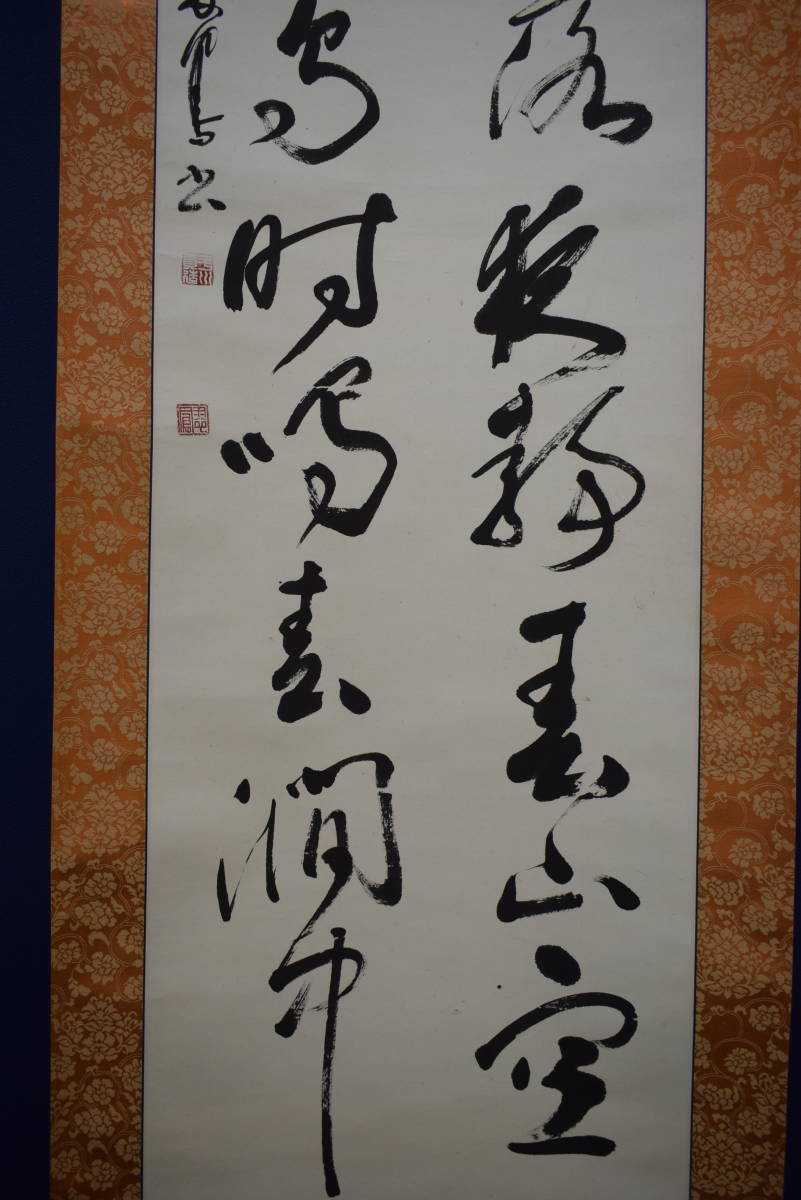 落夜静春山空
鳥時鳴春澗中
書